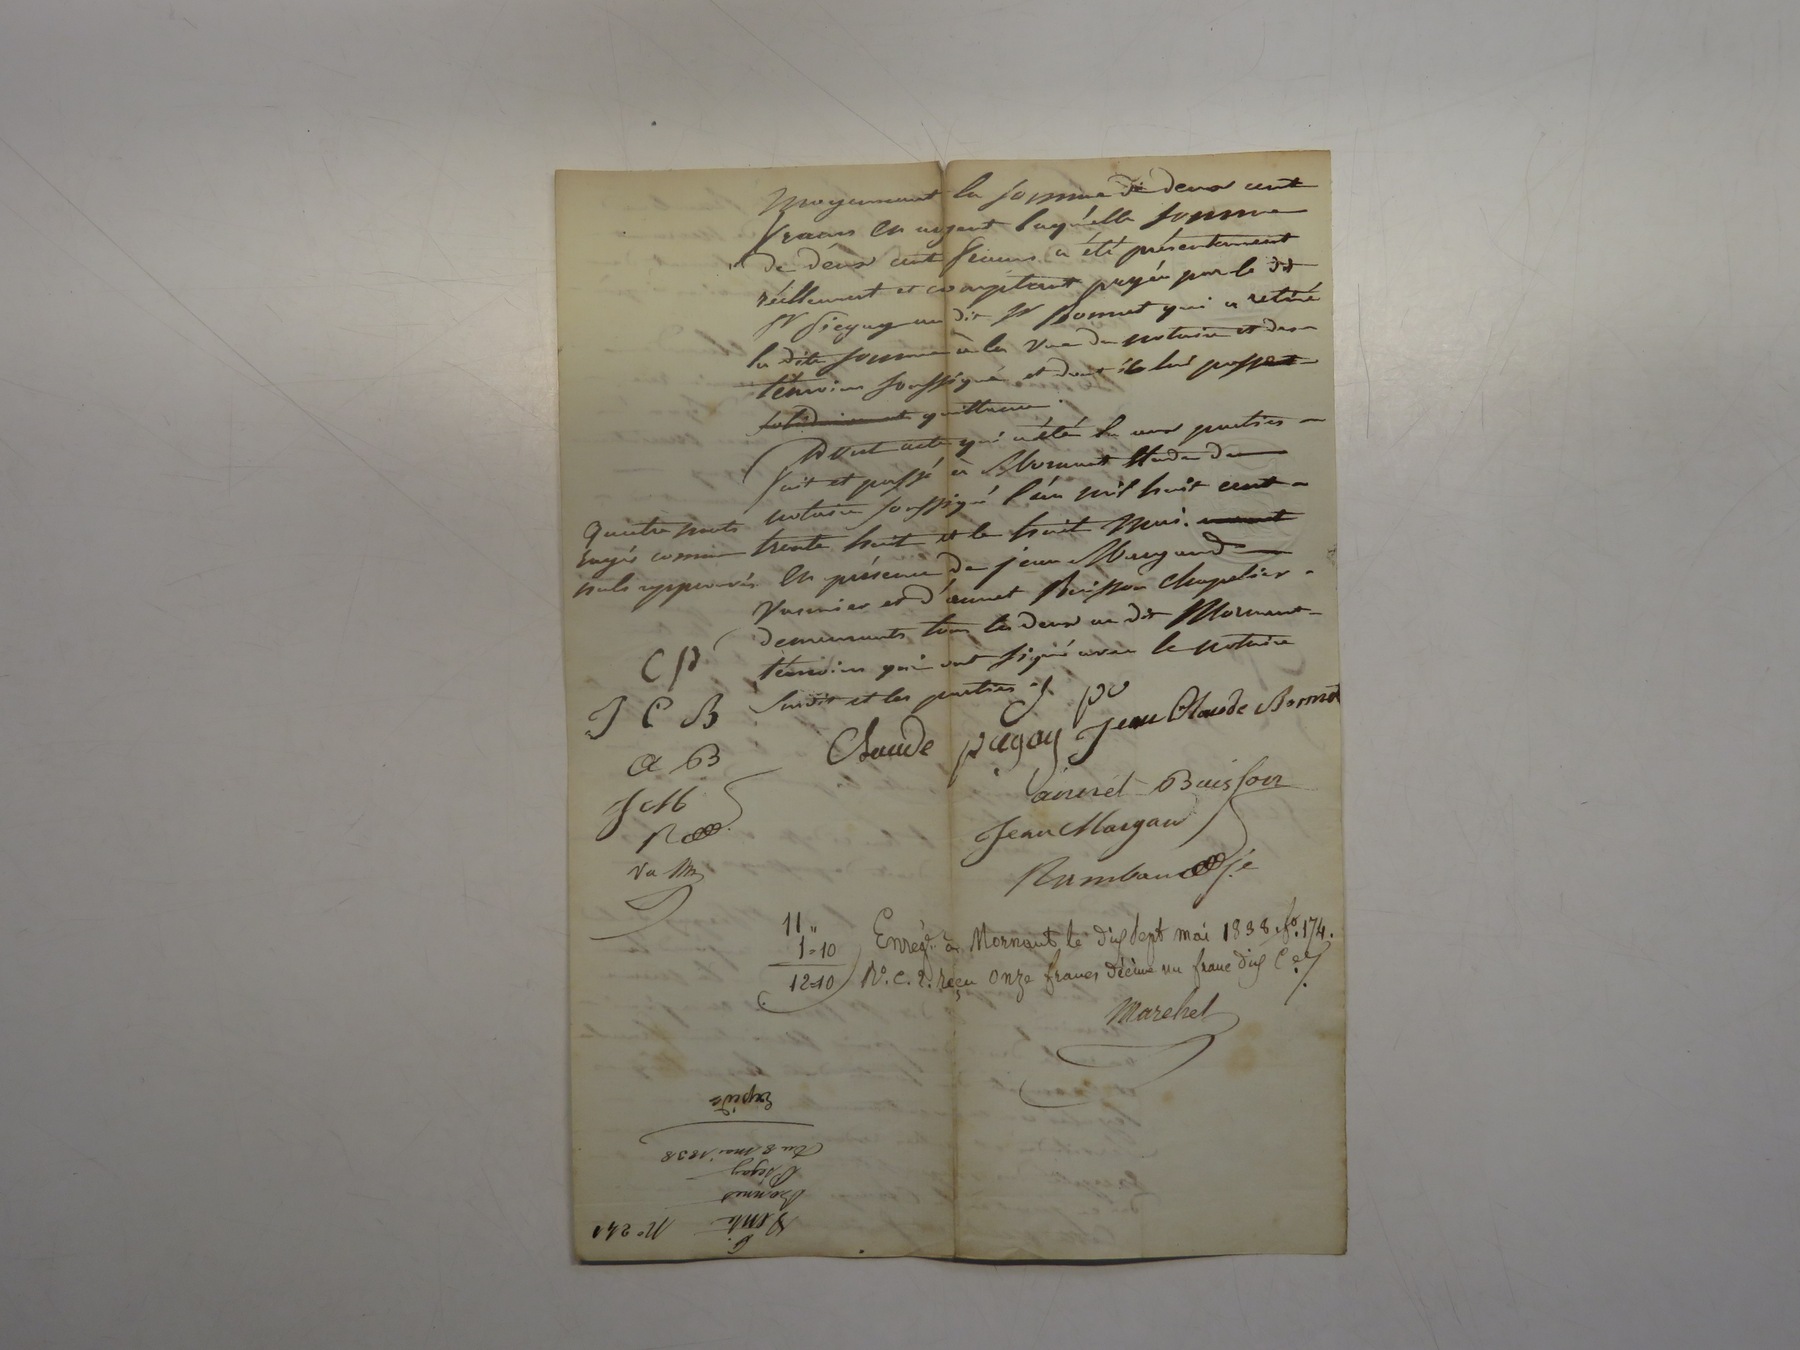 moyennant la somme de deux cent
francs en argent laquelle somme
de deux cent francs a été présentement
réellement et comptant payée par le dit
Sr Piegay au dit Sr Bonnet qui a retiré
la dite somme à la vue du notaire et des
témoins soussignés et dont il lui passent
solidairement quittance.
Dont acte qui a été lu aux parties
fait et passé à Mornant étude du
notaire soussigné l'an mil huit cent
trente huit et le huit mai. avant
En présence de jean Margand
et d'aunet Buisson Chapelier
demeurants tous les deux au dit Mornant
témoins qui ont signé avec le notaire
susdit et les parties
Quatre mots
rayés comme
nuls approuvés
C P
J C B
a B
J M
R
Va
C P
Claude piegay Jean Claude Bonnet
aunet Buisson
Jean Margan
Rambaud
11 "
1=10
12=10
Enregt. à Mornant le dix sept mai 1838, fo. 174.
Ro. C. 2. reçu onze francs décime un franc dix Ces
Marchel
No 240
Vente
Bonnet
Piegay
Du 8 mai 1838
Expédié